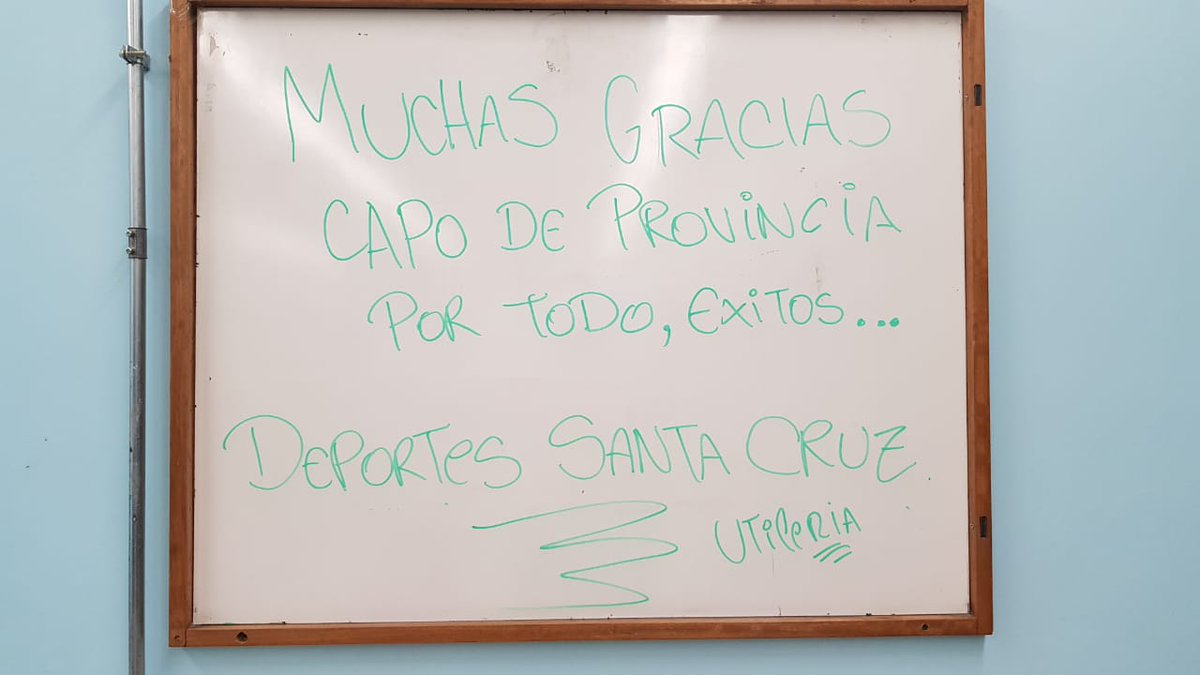 MUCHAS GRACIAS
CAPO DE PROVINCIA
POR TODO, EXITOS...
DEPORTES SANTA CRUZ.
UTILERIA